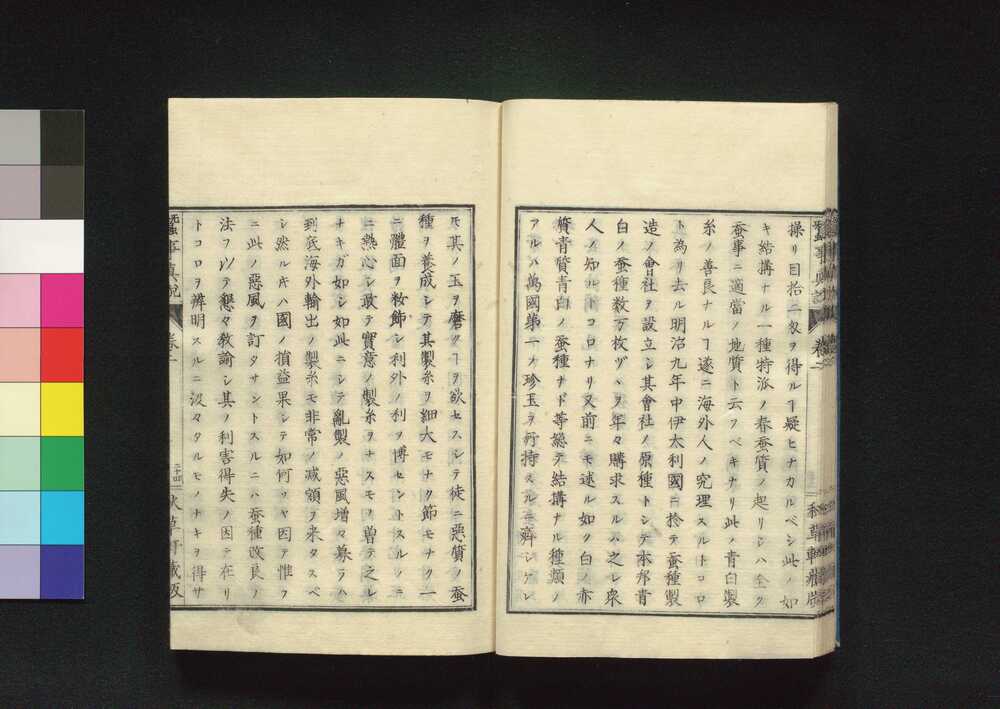 操リ目拾二匁ヲ得ルヿ疑ヒナカルベシ此ノ如
キ結構ナル一種特派ノ春蚕質ノ起リシハ全ク
蚕事ニ適當ノ地質ト云フベキナリ此ノ青白製
糸ノ善良ナルヿ遂ニ海外人ノ究理スルトコロ
ト為リ去ル明治九年中伊太利國ニ於テ蚕種製
造ノ會社ヲ設立シ其會社ノ原種トシテ本邦青
白ノ蚕種数万枚ヅヽヲ年々購求スルハ之レ衆
人ノ知ルトコロナリ又前ニモ述ル如ク白ノ赤
質青質青白ノ蚕種ナド等総テ結構ナル種類ノ
アルハ萬國第一ノ珍玉ヲ所持スルニ齊シケレ
𪜈其ノ玉ヲ磨クヿヲ欲セスシテ徒ニ悪質ノ蚕
種ヲ養成シテ其製糸ヲ細大モナク節モナク一
ニ體面ヲ粧飾シ利外ノ利ヲ博セントスルノミ
ニ熱心シ敢テ實意ノ製糸ヲナスモノ曽テ之レ
ナキガ如シ如此ニシテ亂製ノ悪風増々募ラハ
到底海外輸出ノ製糸モ非常ノ減額ヲ来タスベ
シ然ル𪜈ハ國ノ損益果シテ如何ソヤ因テ惟フ
ニ此ノ悪風ヲ訂タサントスルニハ蚕種改良ノ
法フ以テ懇々教諭シ其ノ利害得失ノ因テ在リ
トコロヲ辨明スルニ汲々タルモノナキヲ得サ
蚕事真説
二十四